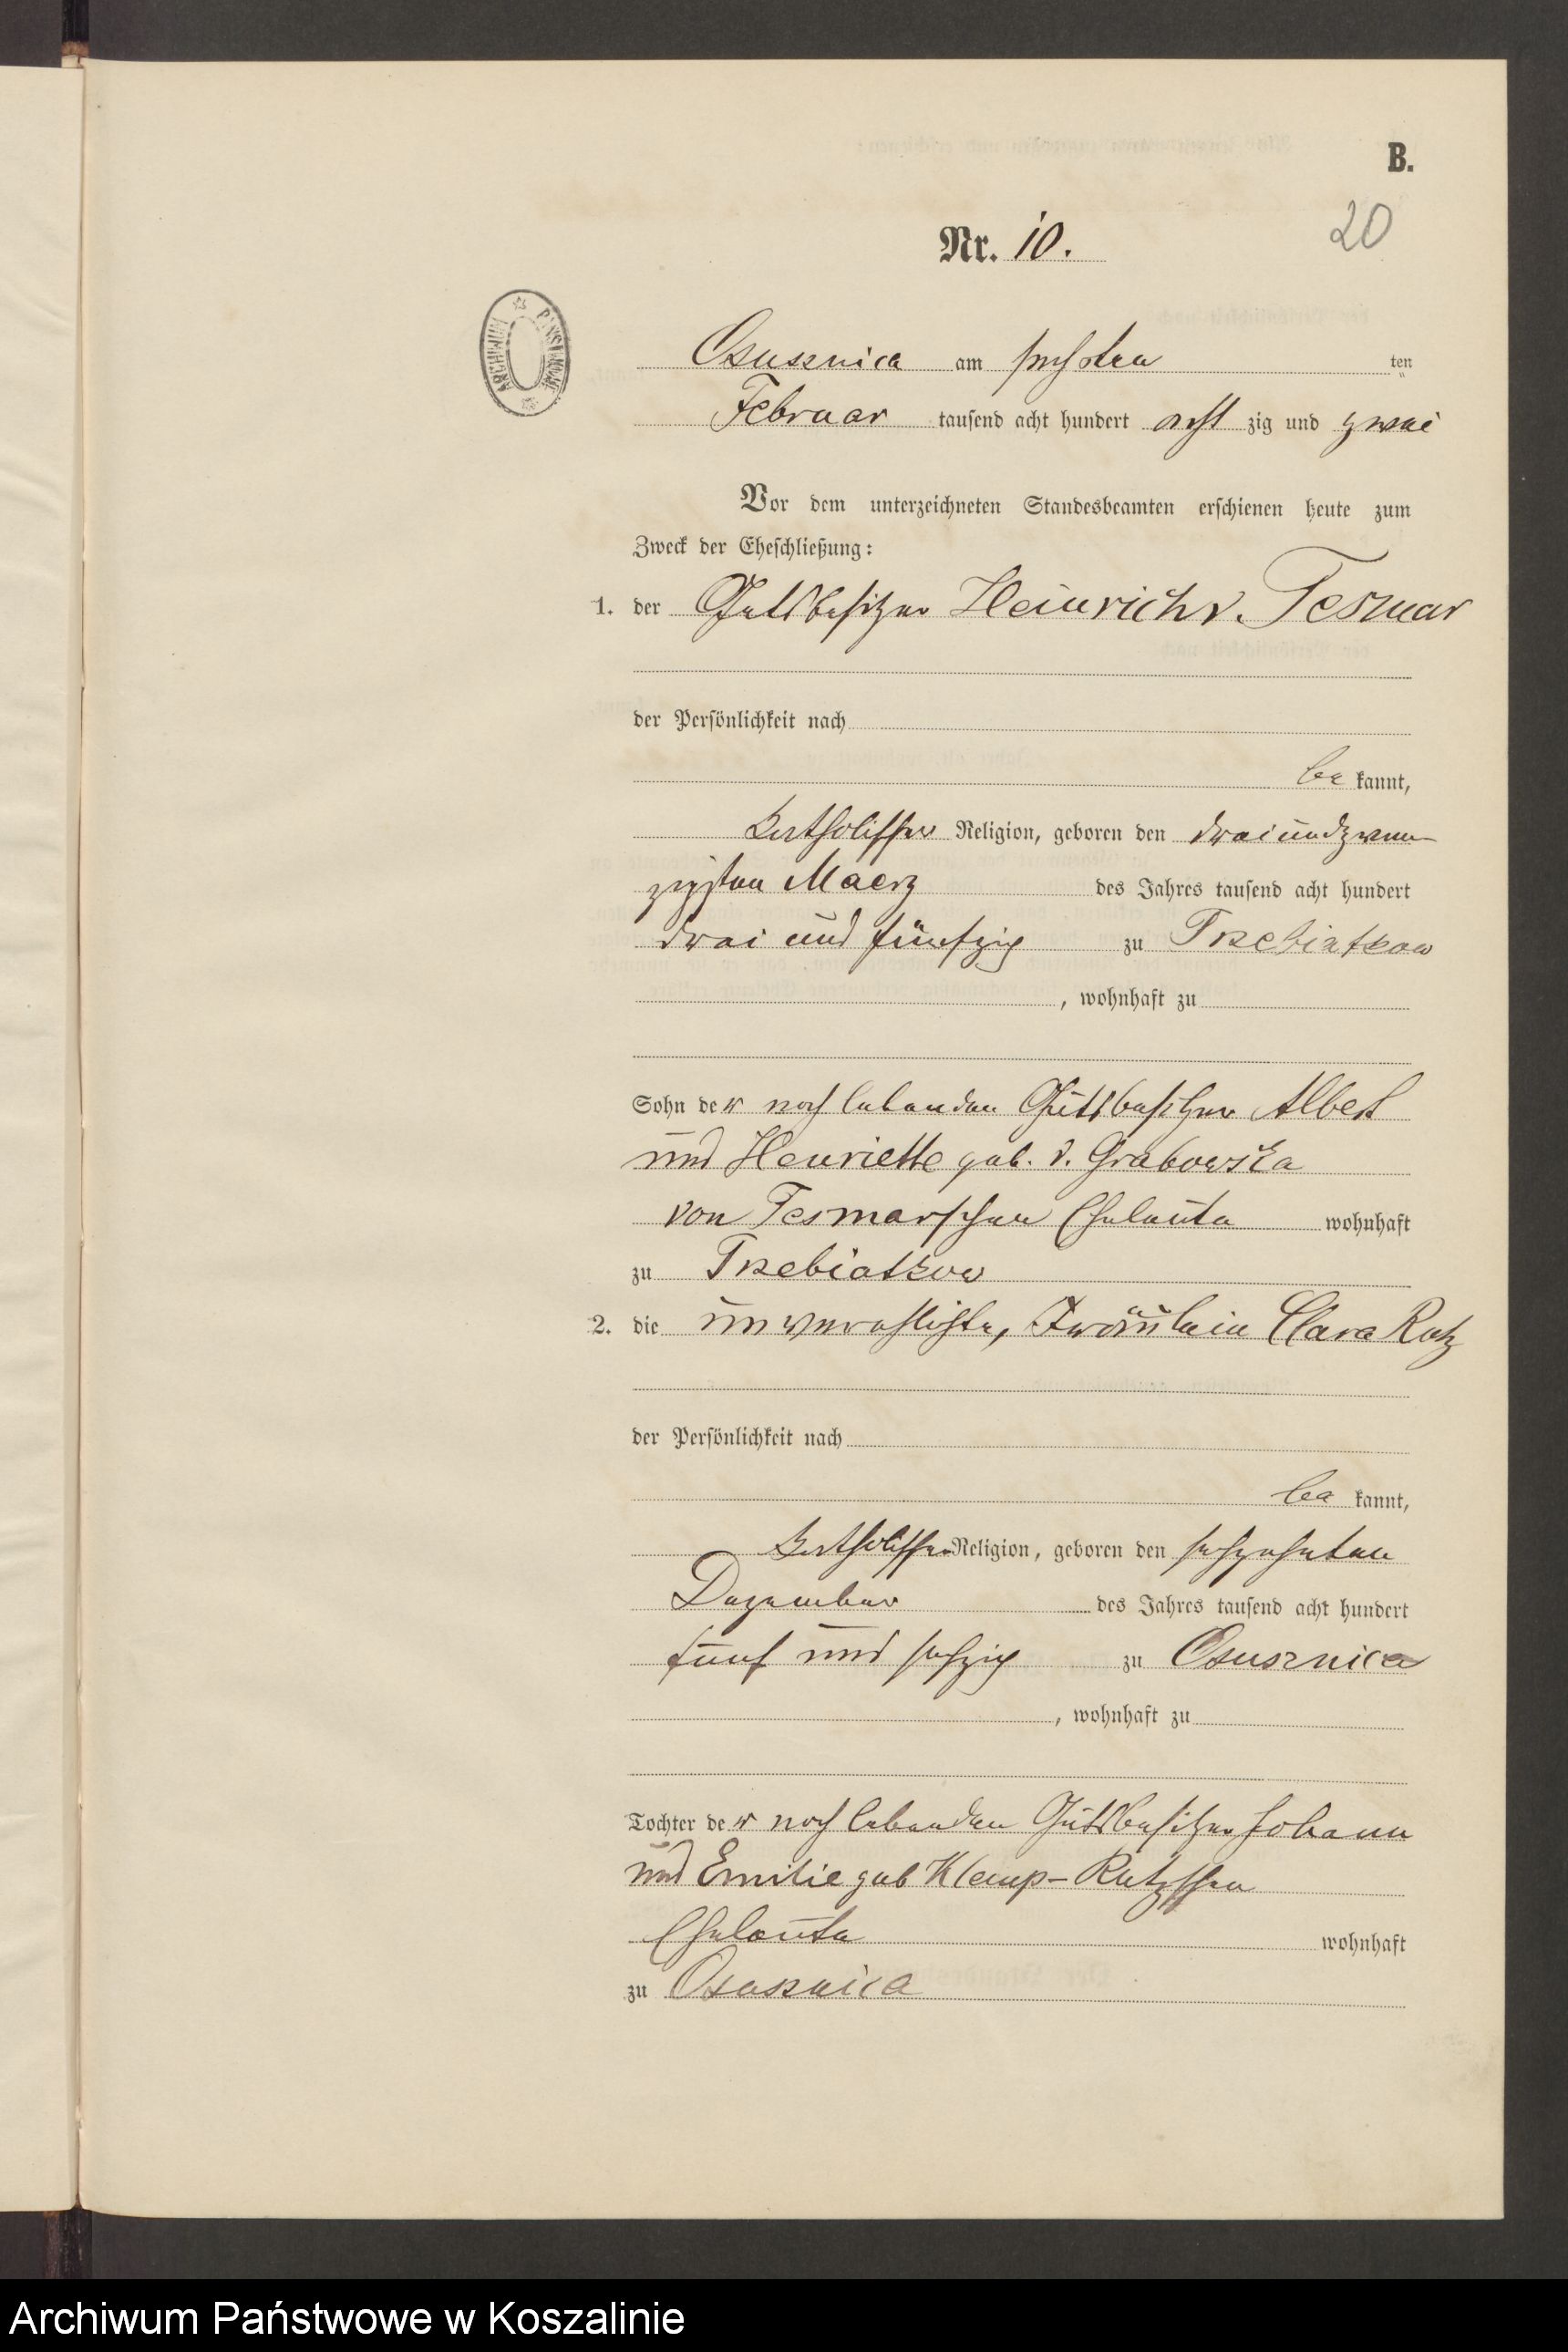 B.
20
Nr. 10.
ARCHIWUM PAŃSTWOWE
Osusznica am sechsten ten
Februar tausend acht hundert acht zig und zwei
Vor dem unterzeichneten Standesbeamten erschienen heute zum
Zweck der Eheschließung:
1. der Gutsbesitzer Heinrich v. Tesmar
der Persönlichkeit nach
be kannt,
katholischer Religion, geboren den dreiundzwan-
zigsten Maerz des Jahres tausend acht hundert
drei und fünfzig zu Trzebiatkow
, wohnhaft zu
Sohn der noch lebenden Gutsbesitzer Albert
und Henriette geb. v. Grabowska
von Tesmarschen Eheleute wohnhaft
zu Trzebiatkow
2. die unverehlichte, Fräulein Clara Rutz
der Persönlichkeit nach
be kannt,
katholischer Religion, geboren den sechzehnten
Dezember des Jahres tausend acht hundert
fünf und sechzig zu Osusznica
, wohnhaft zu
Tochter der noch lebenden Gutsbesitzer Johann
und Emilie geb Klemp-Rutzschen
Eheleute wohnhaft
zu Osusznica
Archiwum Państwowe w Koszalinie